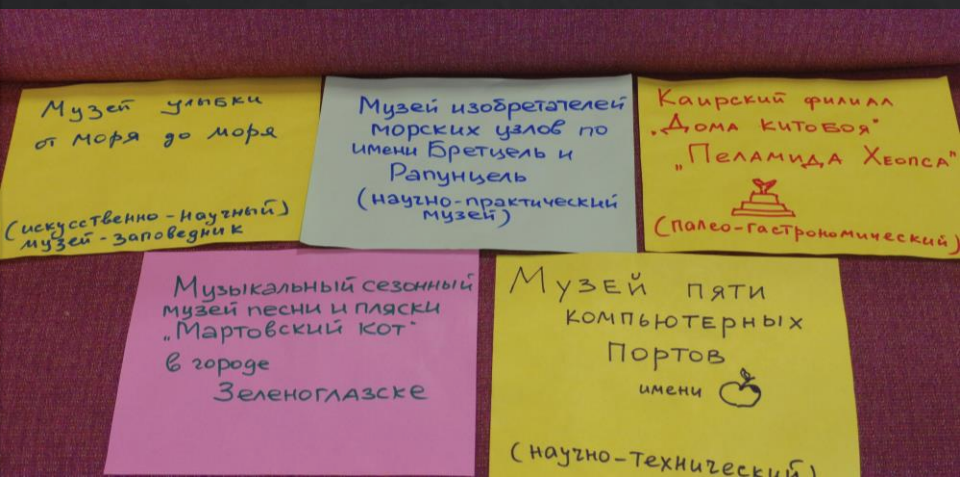 Музей улыбки
от моря до моря
(искусственно-научный)
музей-заповедник
Музей изобретателей
морских узлов по
имени Бретцель и
Рапунцель
(научно-практический
музей)
Каирский филиал
„Дома китобоя"
„Пеламида Хеопса"
(палео-гастрономический)
Музыкальный сезонный
музей песни и пляски
„Мартовский кот"
в городе
Зеленоглазске
Музей пяти
компьютерных
портов
имени
(научно-технический)